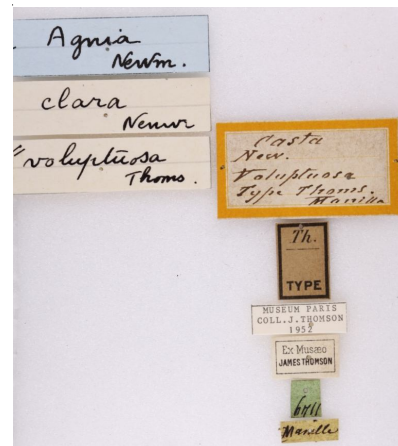 Agnia
Newm.
clara
Newm
voluptuosa
Thoms.
Casta
New.
Voluptuosa
Type Thoms.
Manilla
Th.
TYPE
MUSEUM PARIS
COLL. J. THOMSON
1952
Ex Musæo
JAMES THOMSON
6711
Manille